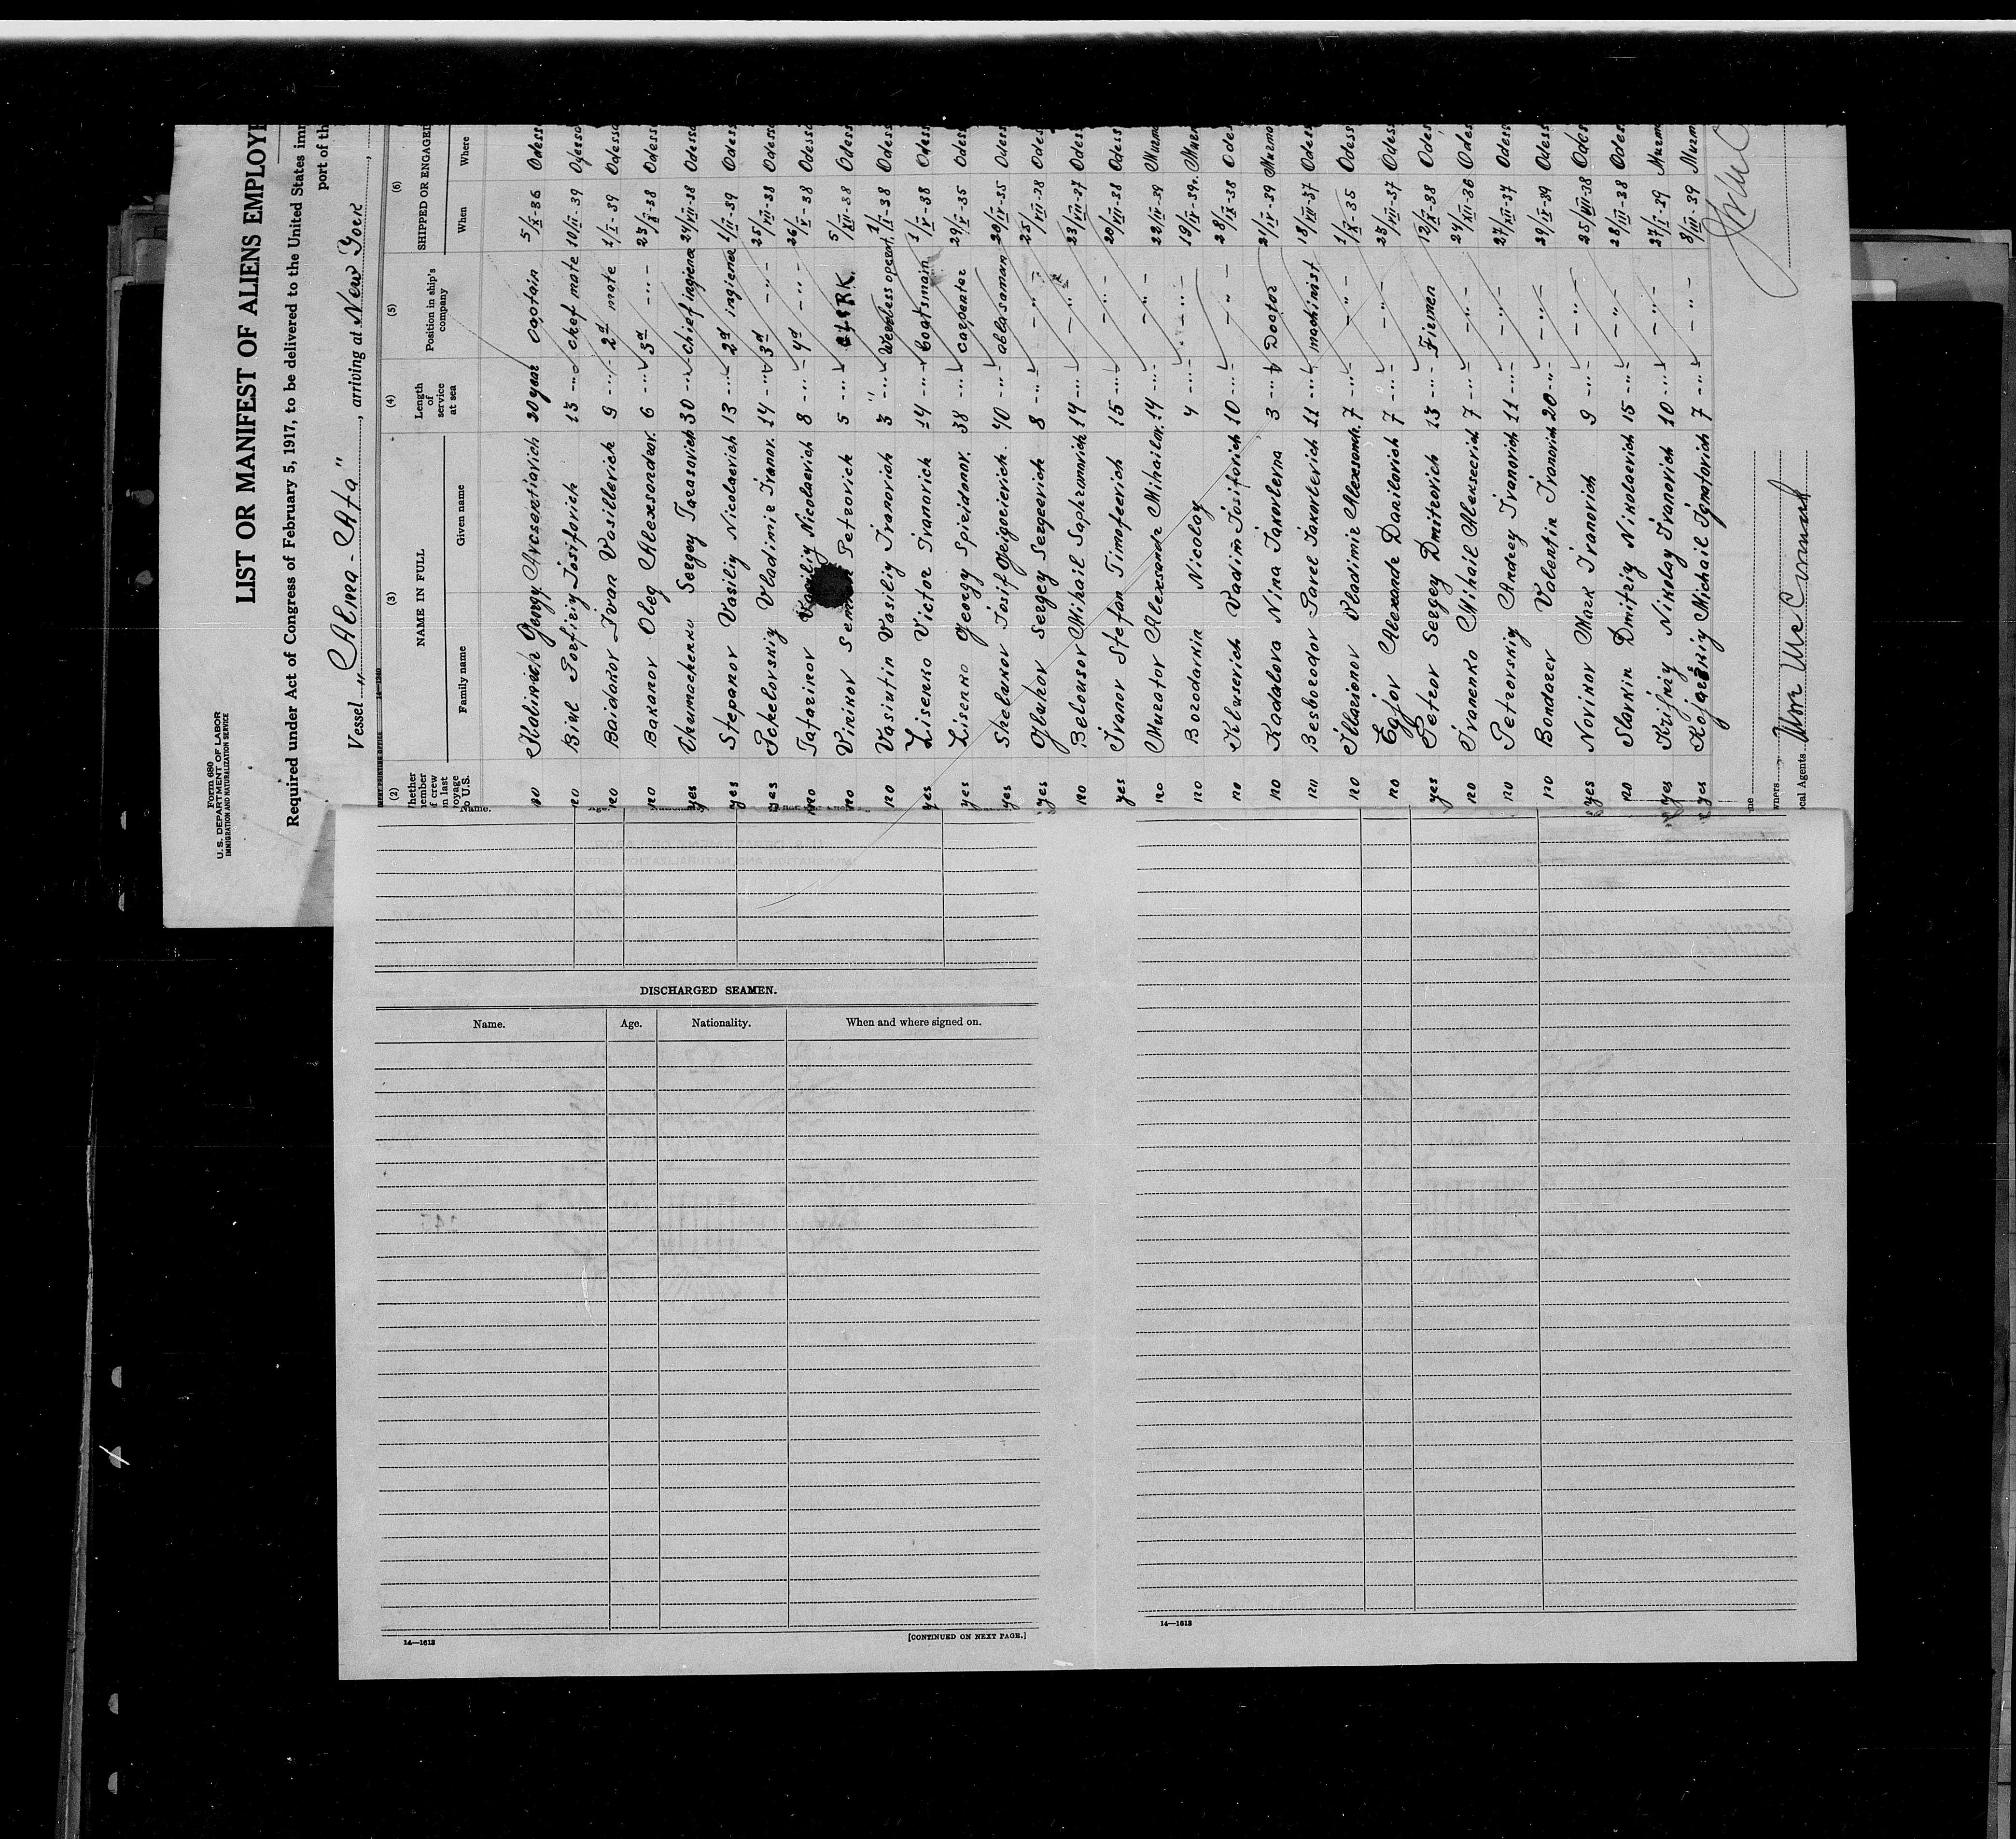 Form 680
U. S. DEPARTMENT OF LABOR
IMMIGRATION AND NATURALIZATION SERVICE
LIST OR MANIFEST OF ALIENS EMPLOYE
Required under Act of Congress of February 5, 1917, to be delivered to the United States imm
port of th
Vessel "Alma-Ata", arriving at New York
(2) (3) (4) (5) (6)
NAME IN FULL Length of service at sea Position in ship's company SHIPPED OR ENGAGED
Family name Given name When Where
no Georgy 20 year captain 5/X-36 Odess
no Biul Porfiriy Iosifovich 13 -"- chef mate 10/II-39 Odessa
no Baidakov Ivan Vasillevich 9 -"- 2d mate 1/I-39 Odessa
no Bakanov Oleg Alexsandrov. 6 -"- 3d -"- 23/X-38 Odess
yes Sergey Tarasovich 30 -"- chief ingiener 24/VIII-38 Odessa
yes Stepanov Vasiliy Nicolaevich 13 -"- 2d ingiener 1/II-39 Odess
yes Vladimir Ivanov. 14 -"- 3d -"- 25/VII-38 Odessa
no Tatarinov Vasiliy Nicolaevich 8 -"- 4d -"- 26/X-38 Odessa
no Virikov Petrovich 5 -"- CLERK. 5/XII-38 Odess
no Vasiutin Vasiliy Ivanovich 3 -"- operat. 1/IX-38 Odess
yes Lisenko Victor Ivanovich 14 -"- boatsmain 1/V-38 Odess
yes Lisenko Georgy Spiridonov. 38 -"- carpenter 29/V-35 Odess
yes Iosif 40 -"- ablasaman 20/IV-35 Odess
yes Gluhov Sergey Sergeevich 8 -"- -"- 25/VII-38 Odess
no Belousov Mihail Saphronovich 14 -"- -"- 23/VII-37 Odess
yes Ivanov Stefan Timofeevich 15 -"- -"- 20/VII-38 Odess
no Muratov Alexsandr Mihailov. 14 -"- -"- 22/IV-39 Murma
no Borodavkin Nicolay 4 -"- -"- 19/IV-39 Murm
no Klusevich Vadim Iosifovich 10 -"- -"- 28/IX-38 Odes
no Kadalova Nina Iakovlevna 3 -"- Doctor 21/V-39 Murma
no Besborodov Pavel Iakovlevich 11 -"- machinist 18/III-37 Odess
no Illarionov Vladimir Alexsandr. 7 -"- -"- 1/X-35 Odess
no Alexandr Danilovich 7 -"- -"- 23/VII-37 Odess
yes Petrov Sergey Dmitrovich 13 -"- Firmen 12/X-38 Odes
no Ivanenko Mihail Alekseevich 7 -"- -"- 24/XII-36 Odes
no Petrovskiy Andrey Ivanovich 11 -"- -"- 27/XII-37 Odess
no Bondarev Valentin Ivanovich 20 -"- -"- 29/IX-39 Odess
yes Novikov Mark Ivanovich 9 -"- -"- 25/VIII-38 Odes
no Slavkin Dmitriy Nikolaevich 15 -"- -"- 28/III-38 Odes
yes Nikolay Ivanovich 10 -"- -"- 27/I-39 Murm
yes Michail Ignatovich 7 -"- -"- 8/III-39 Murm
DISCHARGED SEAMEN.
Name. Age. Nationality. When and where signed on.
14—1613 [CONTINUED ON NEXT PAGE.]
14—1613